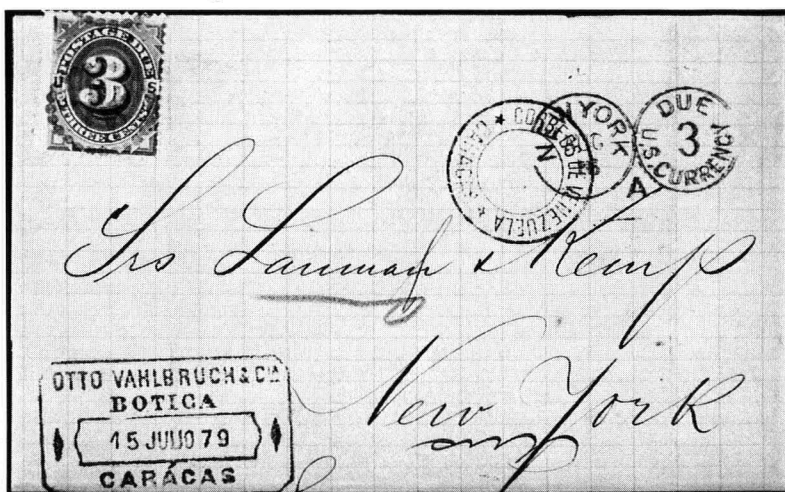 POSTAGE DUE
U 3 S
THREE CENTS
CARACAS ★ CORREOS DE VENEZUELA ★
N. YORK
DUE
3
U.S. CURRENCY
A
Srs Lanman & Kemp
New York
OTTO VAHLBRUCH & Cia
BOTICA
15 JULIO 79
CARÁCAS